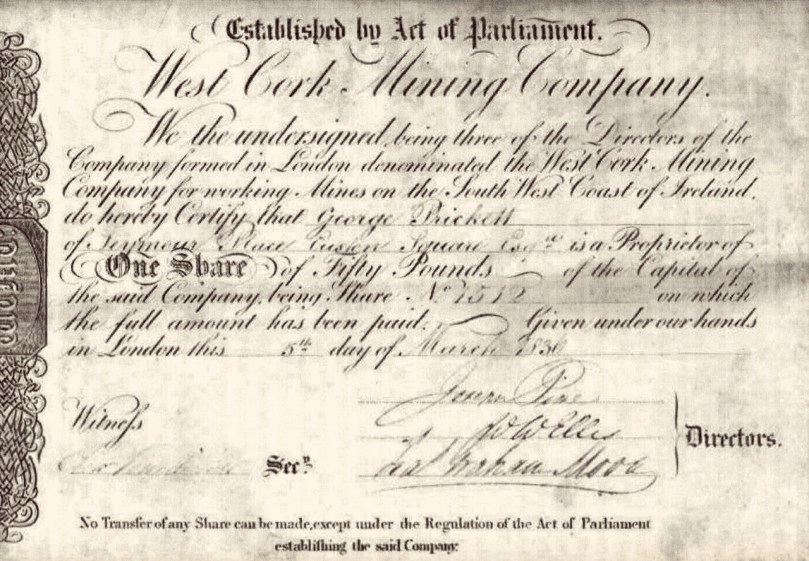 Established by Act of Parliament.
West Cork Mining Company.
We the undersigned, being three of the Directors of the
Company formed in London denominated the West Cork Mining
Company for working Mines on the South West Coast of Ireland,
do hereby Certify that George Prickett
of Seymour Place Euston Square Esqre is a Proprietor of
One Share of Fifty Pounds of the Capital of
the said Company, being Share No 1512 on which
the full amount has been paid. Given under our hands
in London this 5th day of March 1836
Witness
W W Ellis
Directors.
Secy.
Moore
No Transfer of any Share can be made, except under the Regulation of the Act of Parliament
establifhing the said Company.